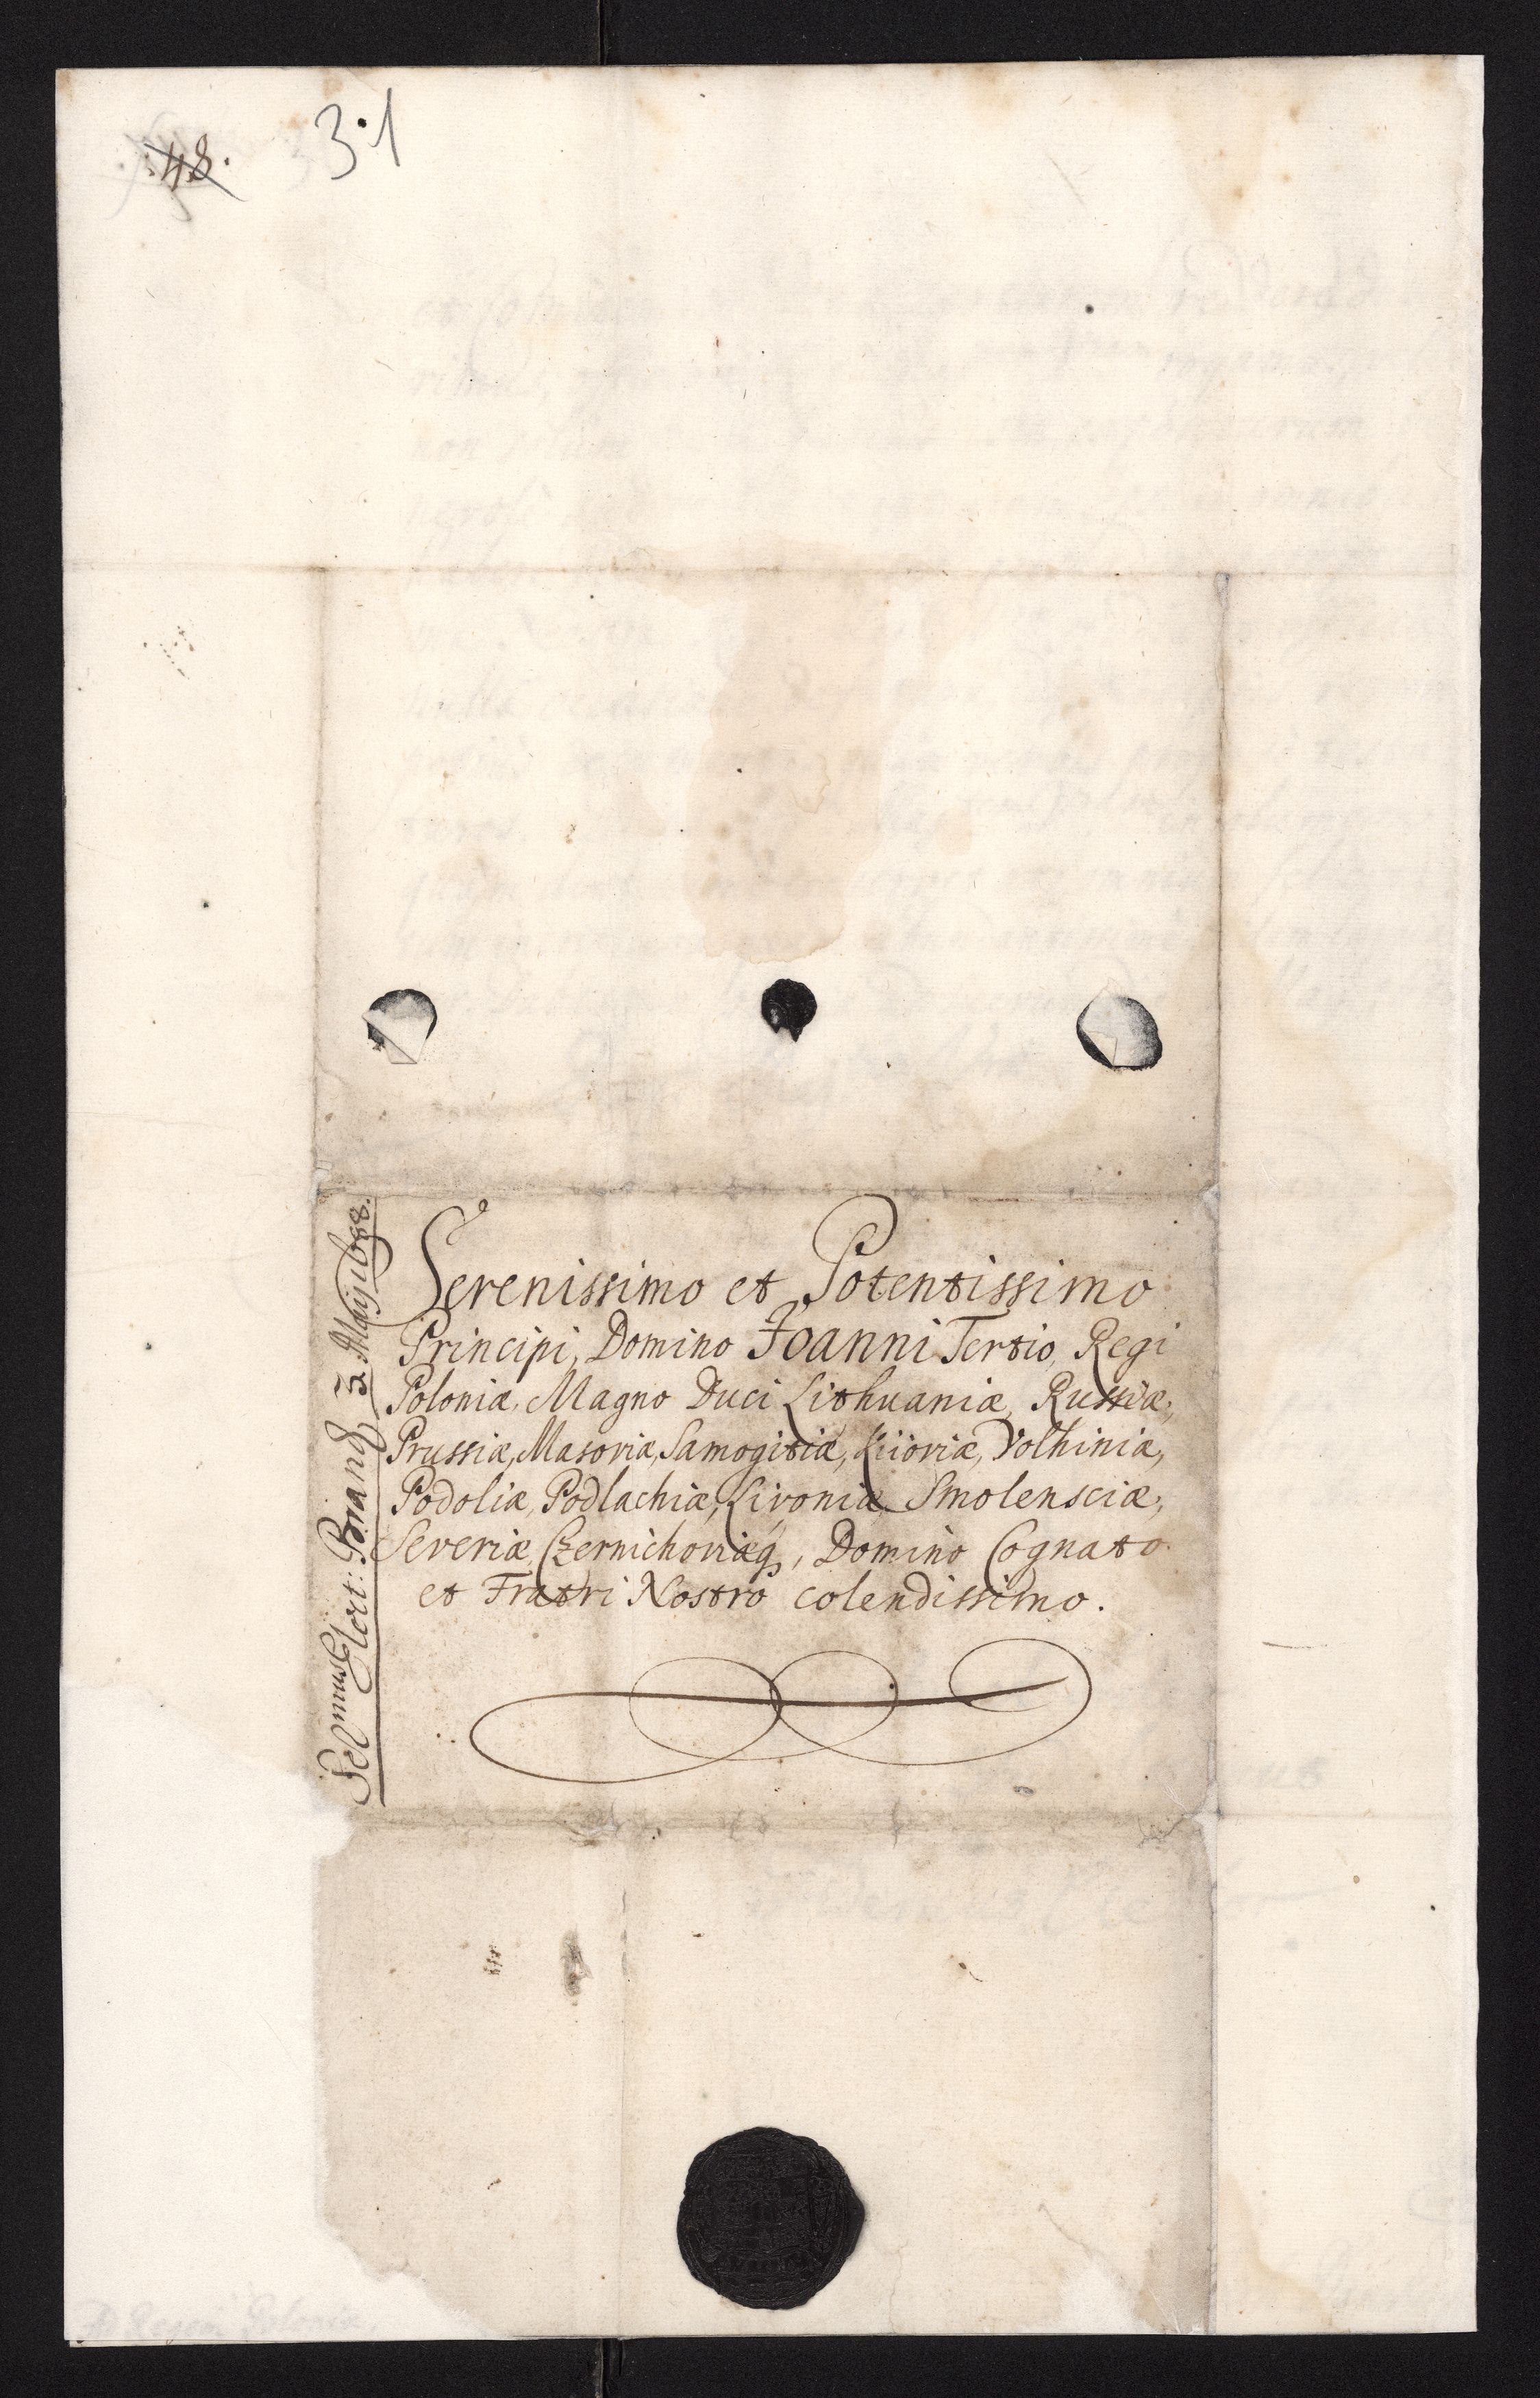 48.
3.1
Serenissimo et Potentissimo
Principi, Domino Joanni Tertio, Regi
Poloniæ, Magno Duci Lithuaniæ, Russiæ,
Prussiæ, Masoviæ, Samogitiæ, Kiioviæ, Volhiniæ,
Podoliæ, Podlachiæ, Livoniæ Smolensciæ,
Severiæ, Czernichoviæq, Domino Cognato
et Fratri Nostro colendissimo.
Elect: Brand 3 Maij 1688.